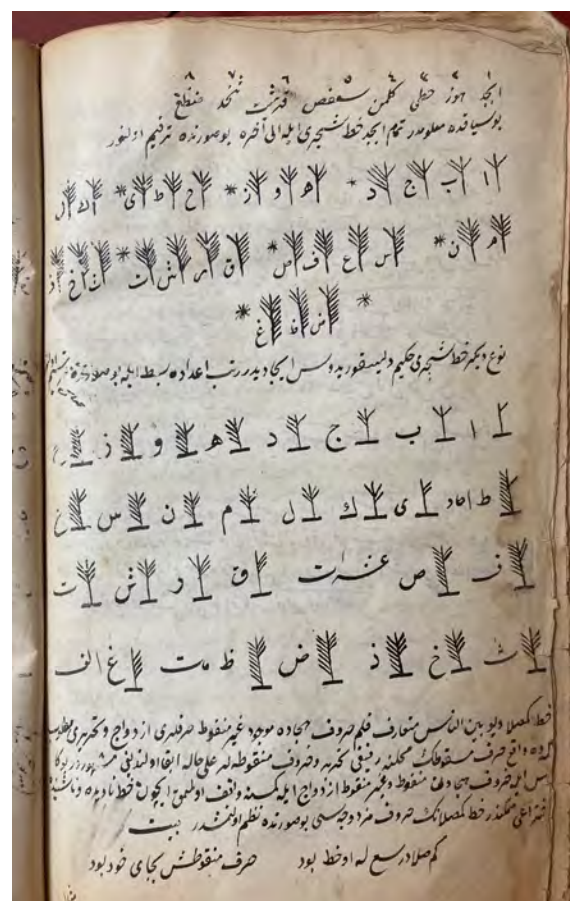 ١ ٢ ٣ ٤ ٥ ٦ ٧ ٨
ابجد هوز حطی كلمن سعفص قرشت ثخذ ضظغ
بو سیاقده معلومدر تمام ابجد خط شجری ایله الی آخره بو صورتده ترقیم اولنور
ا ب ج د * ه و ز * ح ط ی * ك ل
م ن * س ع ف ص * ق ر ش ت * ث خ ذ
* ض ظ غ *
نوع دیگر خط شجری حكیم ایجادیدر رتب اعداده بسط ایله بو صورتده
ا ب ج د ه و ز ح
ط احاد ی ك ل م ن س ع
ف ص عشرات ق ر ش ت
ث خ ذ ض ظ مئات غ الف
خط كمصلا دیو بین الناس متعارف قلم حروف هجاده موجود غیر منقوط حرفلری ازدواج و تحریری مطلب
كرده واقع حرف محلنه رفیقی وحروف منقوطه لر علی حاله ابقا اولندیغی مشهوردر بوكا
حروف هجادن منقوط وغیر منقوط ازدواج ایله واقف اولمق ایچون خط نادیده
اختراعی ممكندر خط كمصلانك حروف مزدوجه سی بو صورتده نظم اولنمشدر بیت
كم صلا در سع له او خط بود حرف منقوطش بجای خود بود